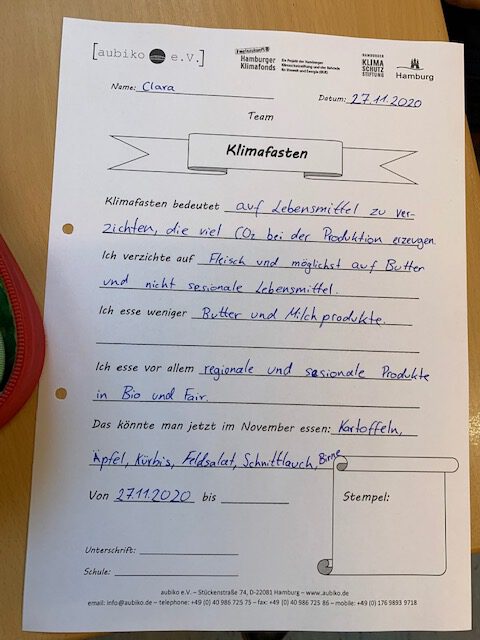 [aubiko e.V.]
#moinzukunft
Hamburger
Klimafonds
Ein Projekt der Hamburger
Klimaschutzstiftung und der Behörde
für Umwelt und Energie (BUE)
HAMBURGER
KLIMA
SCHUTZ
STIFTUNG
Hamburg
Name: Clara
Datum: 27.11.2020
Team
Klimafasten
Klimafasten bedeutet auf Lebensmittel zu ver-
zichten, die viel CO₂ bei der Produktion erzeugen.
Ich verzichte auf Fleisch und möglichst auf Butter
und nicht sesionale Lebensmittel.
Ich esse weniger Butter und Milchprodukte.
Ich esse vor allem regionale und sesionale Produkte
in Bio und Fair.
Das könnte man jetzt im November essen: Kartoffeln,
Äpfel, Kürbis, Feldsalat, Schnittlauch, Birne
Von 27.11.2020 bis
Stempel:
Unterschrift:
Schule:
aubiko e.V. – Stückenstraße 74, D-22081 Hamburg – www.aubiko.de
email: info@aubiko.de – telephone: +49 (0) 40 986 725 75 – fax: +49 (0) 40 986 725 86 – mobile: +49 (0) 176 9893 9718